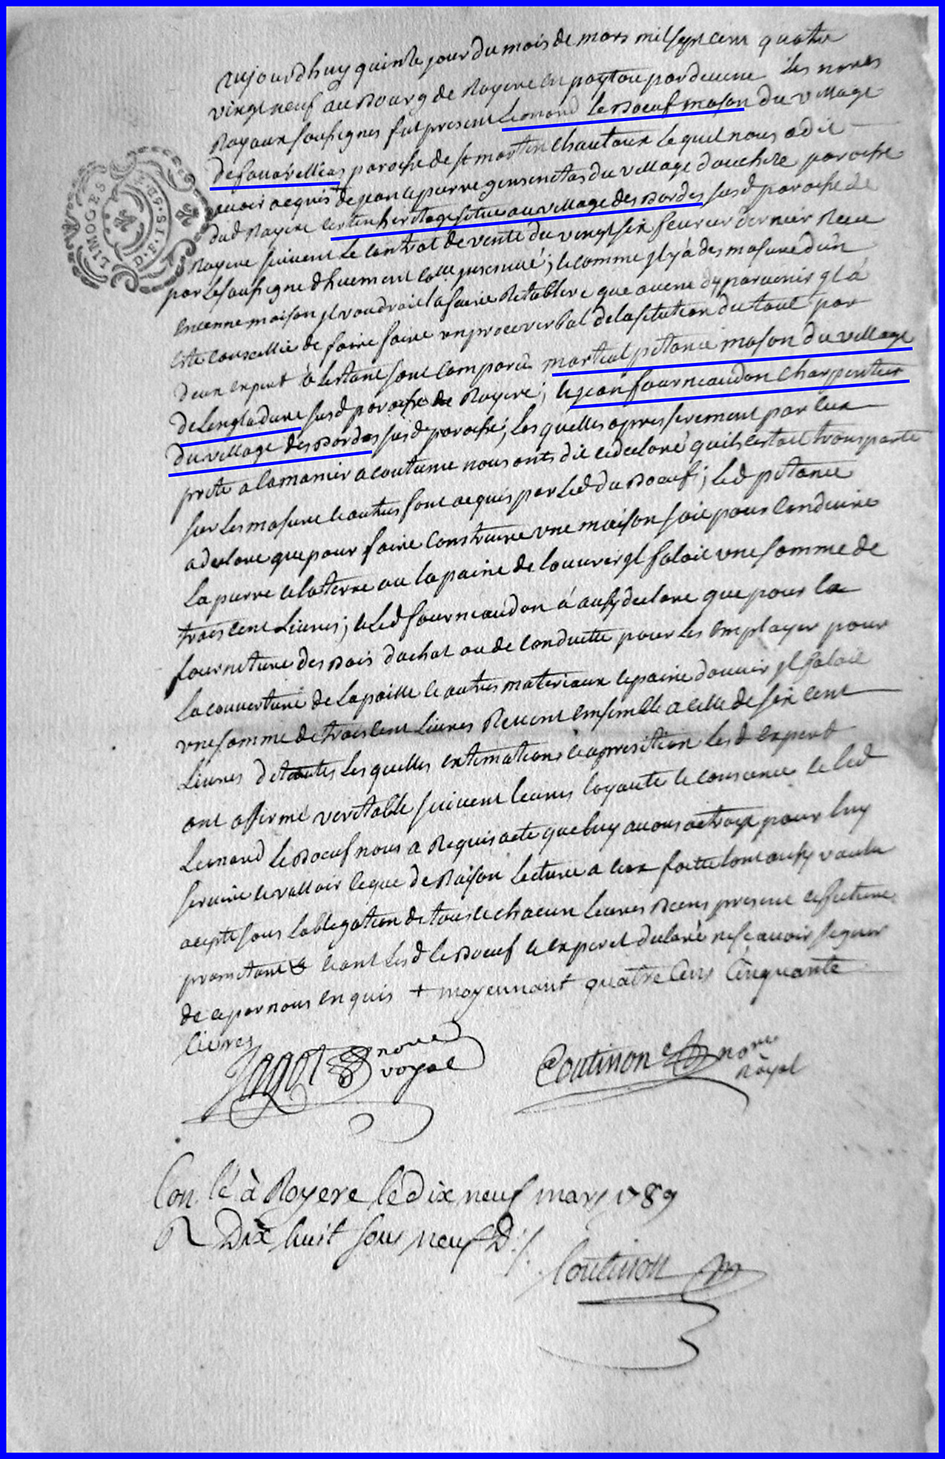 aujourdhuy quinze jour du mois de mars mil sept cent quatre
vingt neuf au Bourg de Royere en poytou pardevant les nores
Royaux Soussignes fut present Leonard Le Boeuf mason du village
de fauvelleas paroisse de st martin chautaux Lequel nous a dit
avoir acquis de jean et pierre du village paroisse
dud Royere certin heritage situe au village des Bordes susd paroisse de
Royere suivent le contrat de vente du vingt six fevrier dernier Recu
par Le Sousigne dhuement ; et comme jl y a des masure dun
encienne maison jl voudroit la faire Retablire que avent dy parvenir jl à
este conseillié de faire faire un proces verbal de la sitution du tout par
deux expert à lestant sont comparus martial pitance mason du village
de Lengladure susd paroisse de Royere; et jean fourneaudon charpentier
du village des Bordes susd paroisse; Les quelles apres serement par eux
prete a la manier acoutume nous onts dit et declare quils cestoit transporte
sur Les masure et autres sont acquis par Led du Boeuf; Led pitance
a declare que pour faire construire une maison soit pour conduire
la pierre et la terre ou la paine de louvrer jl faloit une somme de
trois cent Livres; et Led fourneaudon à ausy declare que pour la
fourneture des Bois dachat ou de conduitte pour les employer pour
la couverture de la paille et autres materiaux et paine douvrir jl faloit
une somme de trois cent Livres Revient ensemble a celle de six cent
Livres de toutes Les quelles extimations et aprosition Les d expert
ont affirmé veritable suivent leures loyauté et consience et led
Leonard Le Boeuf nous a Requis acte que luy avons actroye pour luy
servire et valloir ce que de Raison Lecture a eux faitte lont ausy voulu
acepte sous Lobligation de tous et chacun leures Biens present et future
prometant & et ont Les d Le Boeuf et experet declaré ne scavoir signer
de ce par nous enquis + moyennant quatre Cens Cinquante
Livres
Jagot nore royal
Coutisson nore Royal
Con lé à Royere le dix neuf mars 1789
R Dix huit sous neuf D:/.
Coutisson
LIMOGES